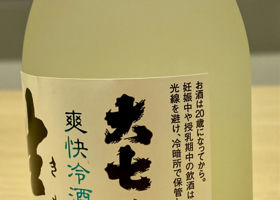 お酒は20歳になってから。
妊娠中や授乳期中の飲酒は
光線を避け、冷暗所で保管
大七
爽快冷酒
生
き